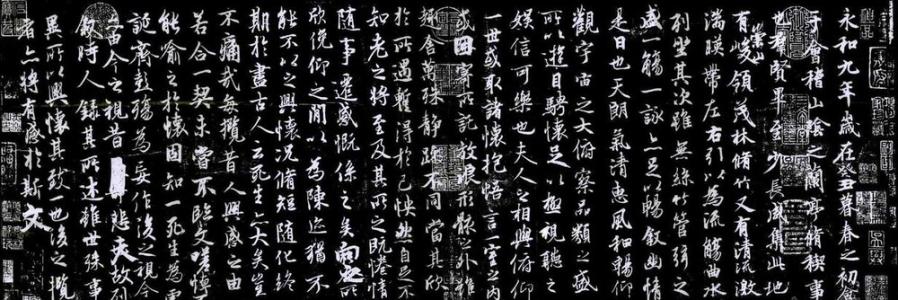 永和九年歲在癸丑暮春之初
于會稽山陰之蘭亭脩稧事
也羣賢畢至少長咸集此地
有崇山峻領茂林脩竹又有清流激
湍暎帶左右引以為流觴曲水
列坐其次雖無絲竹管弦之
盛一觴一詠亦足以暢敘幽情
是日也天朗氣清惠風和暢仰
觀宇宙之大俯察品類之盛
所以遊目騁懷足以極視聽之
娛信可樂也夫人之相與俯仰
一世或取諸懷抱悟言一室之內
或因寄所託放浪形骸之外雖
趣舍萬殊靜躁不同當其欣
於所遇蹔得於己怏然自足不
知老之將至及其所之既惓情
隨事遷感慨係之矣向之所
欣俛仰之閒以為陳迹猶不
能不以之興懷況脩短隨化終
期於盡古人云死生亦大矣豈
不痛哉每攬昔人興感之由
若合一契未嘗不臨文嗟悼
能喻之於懷固知一死生為虛
誕齊彭殤為妄作後之視今
亦由今之視昔悲夫故列
敘時人錄其所述雖世殊事
異所以興懷其致一也後之攬
者亦將有感於斯文